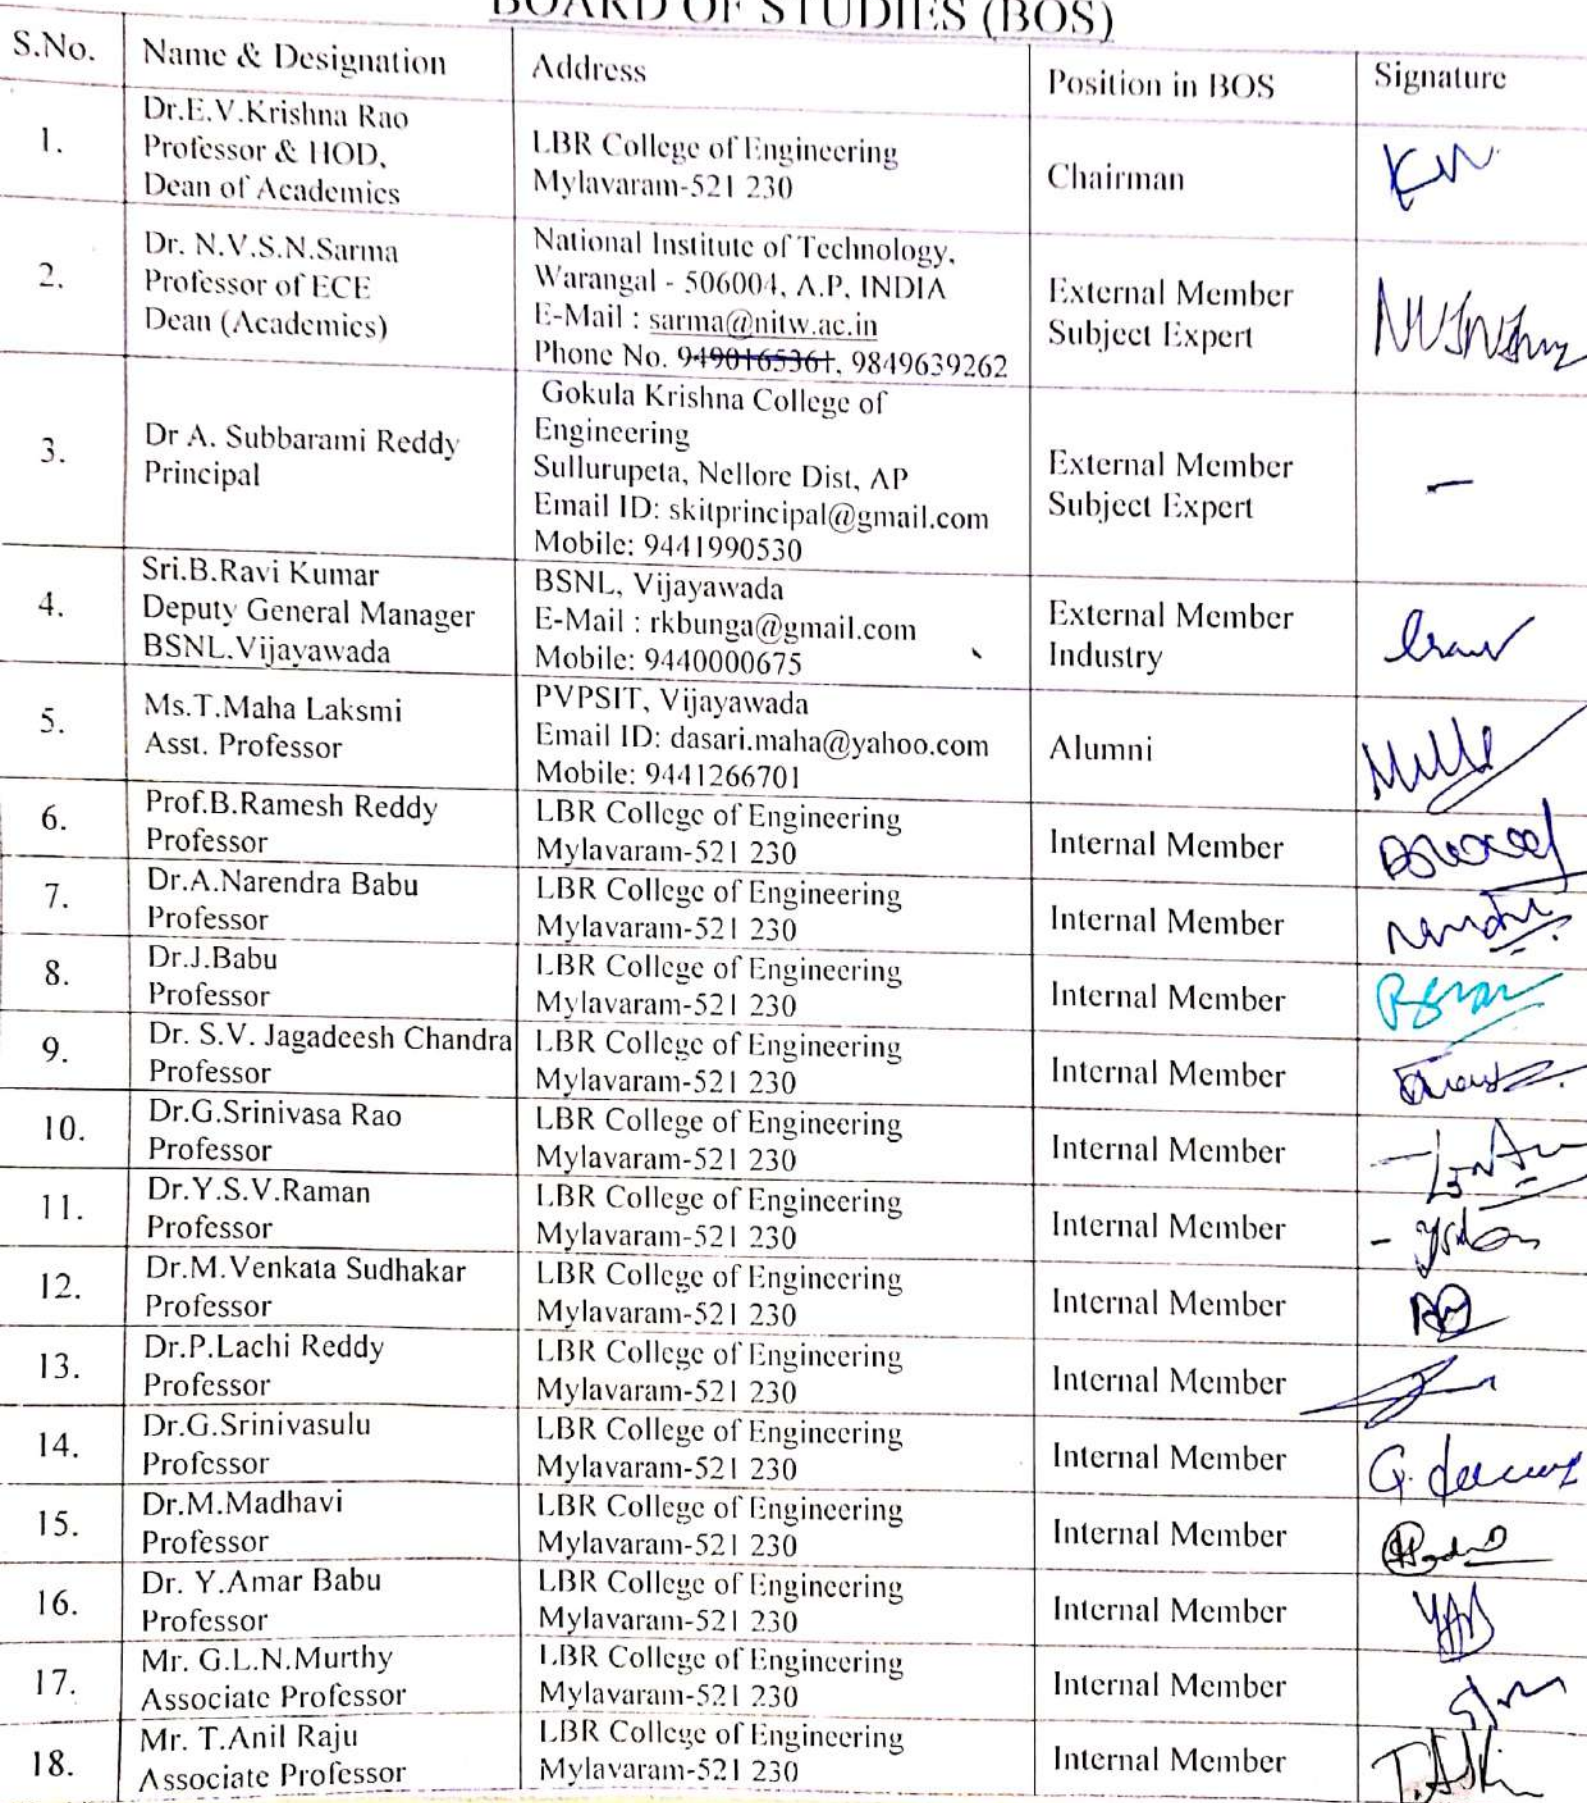 BOARD OF STUDIES (BOS)
S.No. Name & Designation Address Position in BOS Signature
1. Dr.E.V.Krishna Rao
Professor & HOD,
Dean of Academics
LBR College of Engineering
Mylavaram-521 230
Chairman
2. Dr. N.V.S.N.Sarma
Professor of ECE
Dean (Academics)
National Institute of Technology,
Warangal - 506004, A.P, INDIA
E-Mail : sarma@nitw.ac.in
Phone No. 9490165361, 9849639262
External Member
Subject Expert
3. Dr A. Subbarami Reddy
Principal
Gokula Krishna College of
Engineering
Sullurupeta, Nellore Dist, AP
Email ID: skitprincipal@gmail.com
Mobile: 9441990530
External Member
Subject Expert
–
4. Sri.B.Ravi Kumar
Deputy General Manager
BSNL.Vijayawada
BSNL, Vijayawada
E-Mail : rkbunga@gmail.com
Mobile: 9440000675
External Member
Industry
5. Ms.T.Maha Laksmi
Asst. Professor
PVPSIT, Vijayawada
Email ID: dasari.maha@yahoo.com
Mobile: 9441266701
Alumni
6. Prof.B.Ramesh Reddy
Professor
LBR College of Engineering
Mylavaram-521 230
Internal Member
7. Dr.A.Narendra Babu
Professor
LBR College of Engineering
Mylavaram-521 230
Internal Member
8. Dr.J.Babu
Professor
LBR College of Engineering
Mylavaram-521 230
Internal Member
9. Dr. S.V. Jagadeesh Chandra
Professor
LBR College of Engineering
Mylavaram-521 230
Internal Member
10. Dr.G.Srinivasa Rao
Professor
LBR College of Engineering
Mylavaram-521 230
Internal Member
11. Dr.Y.S.V.Raman
Professor
LBR College of Engineering
Mylavaram-521 230
Internal Member
12. Dr.M.Venkata Sudhakar
Professor
LBR College of Engineering
Mylavaram-521 230
Internal Member
13. Dr.P.Lachi Reddy
Professor
LBR College of Engineering
Mylavaram-521 230
Internal Member
14. Dr.G.Srinivasulu
Professor
LBR College of Engineering
Mylavaram-521 230
Internal Member
15. Dr.M.Madhavi
Professor
LBR College of Engineering
Mylavaram-521 230
Internal Member
16. Dr. Y.Amar Babu
Professor
LBR College of Engineering
Mylavaram-521 230
Internal Member
17. Mr. G.L.N.Murthy
Associate Professor
LBR College of Engineering
Mylavaram-521 230
Internal Member
18. Mr. T.Anil Raju
Associate Professor
LBR College of Engineering
Mylavaram-521 230
Internal Member